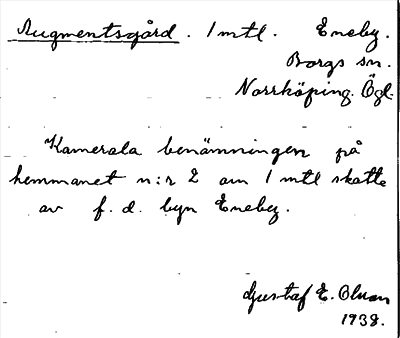 Augmentsgård. 1 mtl. Eneby.
Borgs sn.
Norrköping. Ögl.
Kamerala benämningen på
hemmanet n:r 2 om 1 mtl skatte
av f. d. byn Eneby.
Gustaf E. Olson
1938.